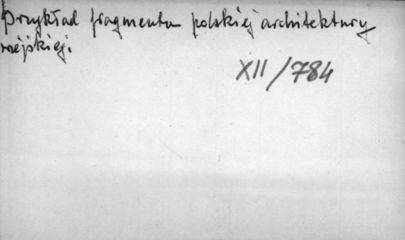 Przykład fragmentu polskiej architektury
wiejskiej.
XII/784